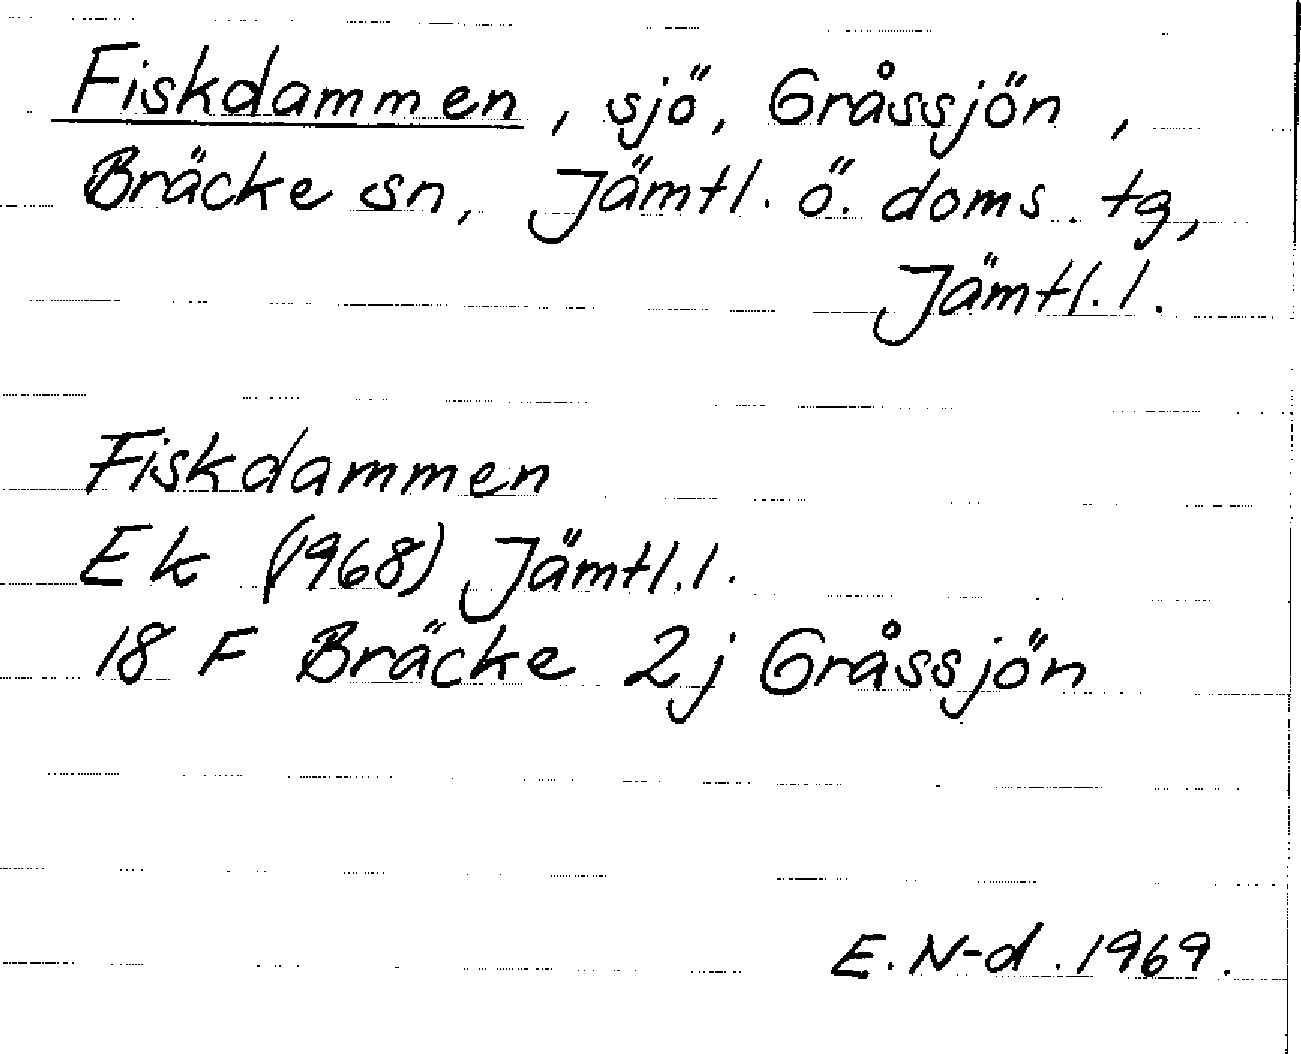 Fiskdammen, sjö, Gråssjön,
Bräcke sn, Jämtl. ö. doms. tg,
Jämtl. l.
Fiskdammen
Ek (1968) Jämtl. l.
18 F Bräcke 2j Gråssjön
E. N-d. 1969.